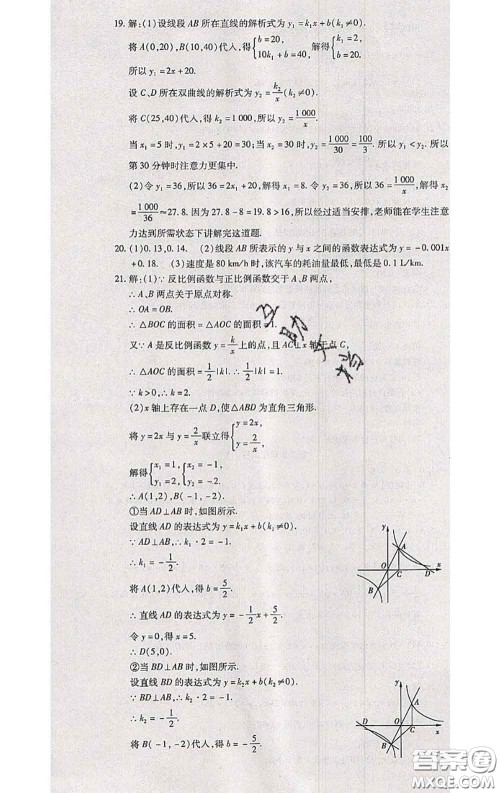 19. 解:(1)设线段 AB 所在直线的解析式为 y₁=k₁x+b(k₁≠0).
将 A(0,20),B(10,40)代入,得{b=20, 10k₁+b=40, 解得{k₁=2, b=20.
所以 y₁=2x+20.
设 C、D 所在双曲线的解析式为 y₂=k₂/x(k₂≠0).
将 C(25,40)代入,得 k₂=1 000,所以 y₂=1 000/x.
当 x₁=5 时,y₁=2×5+20=30;当 x₂=30 时,y₂=1 000/30=100/3. 所以 y₁<y₂. 所以
第30分钟时注意力更集中.
(2)令 y₁=36,所以 36=2x₁+20,解得 x₁=8. 令 y₂=36,所以 36=1 000/x₂,解得 x₂
=1 000/36≈27.8. 因为 27.8-8=19.8>16,所以经过适当安排,老师能在学生注意
力达到所需状态下讲解完这道题.
20. (1)0.13,0.14. (2)线段 AB 所表示的 y 与 x 之间的函数表达式为 y=-0.001x
+0.18. (3)速度是 80 km/h 时,该汽车的耗油量最低,最低是 0.1 L/km.
21. 解:(1)∵反比例函数与正比例函数交于 A、B 两点,
∴A、B 两点关于原点对称.
∴OA=OB.
∴△BOC 的面积=△AOC 的面积=1.
又∵A 是反比例函数 y=k/x 上的点,且 AC⊥x 轴于点 C,
∴△AOC 的面积=1/2|k|. ∴1/2|k|=1.
∵k>0,∴k=2.
(2)x 轴上存在一点 D,使△ABD 为直角三角形.
将 y=2x 与 y=2/x 联立得{y=2x, y=2/x,
解得{x₁=1, y₁=2, {x₂=-1, y₂=-2.
∴A(1,2),B(-1,-2).
①当 AD⊥AB 时,如图所示.
设直线 AD 的表达式为 y=k₁x+b(k₁≠0).
∵AD⊥AB,∴k₁·2=-1.
∴k₁=-1/2.
将 A(1,2)代入,得 b=5/2.
∴直线 AD 的表达式为 y=-1/2x+5/2.
令 y=0,得 x=5.
∴D(5,0).
②当 BD⊥AB 时,如图所示.
设直线 BD 的表达式为 y=k₂x+b(k₂≠0).
∵BD⊥AB,∴k₂·2=-1.
∴k₂=-1/2.
将 B(-1,-2)代入,得 b=-5/2.
y
A
O
C
D
x
B
y
A
D
O
C
x
B
答案圈
MXQE.COM